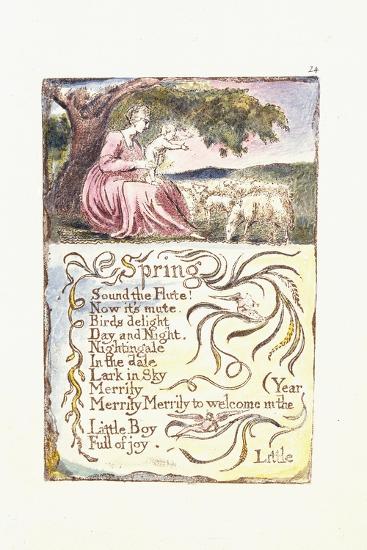 24
Spring
Sound the Flute!
Now it's mute.
Birds delight
Day and Night.
Nightingale
In the dale
Lark in Sky
Merrily
(Year
Merrily Merrily to welcome in the
Little Boy
Full of joy.
Little